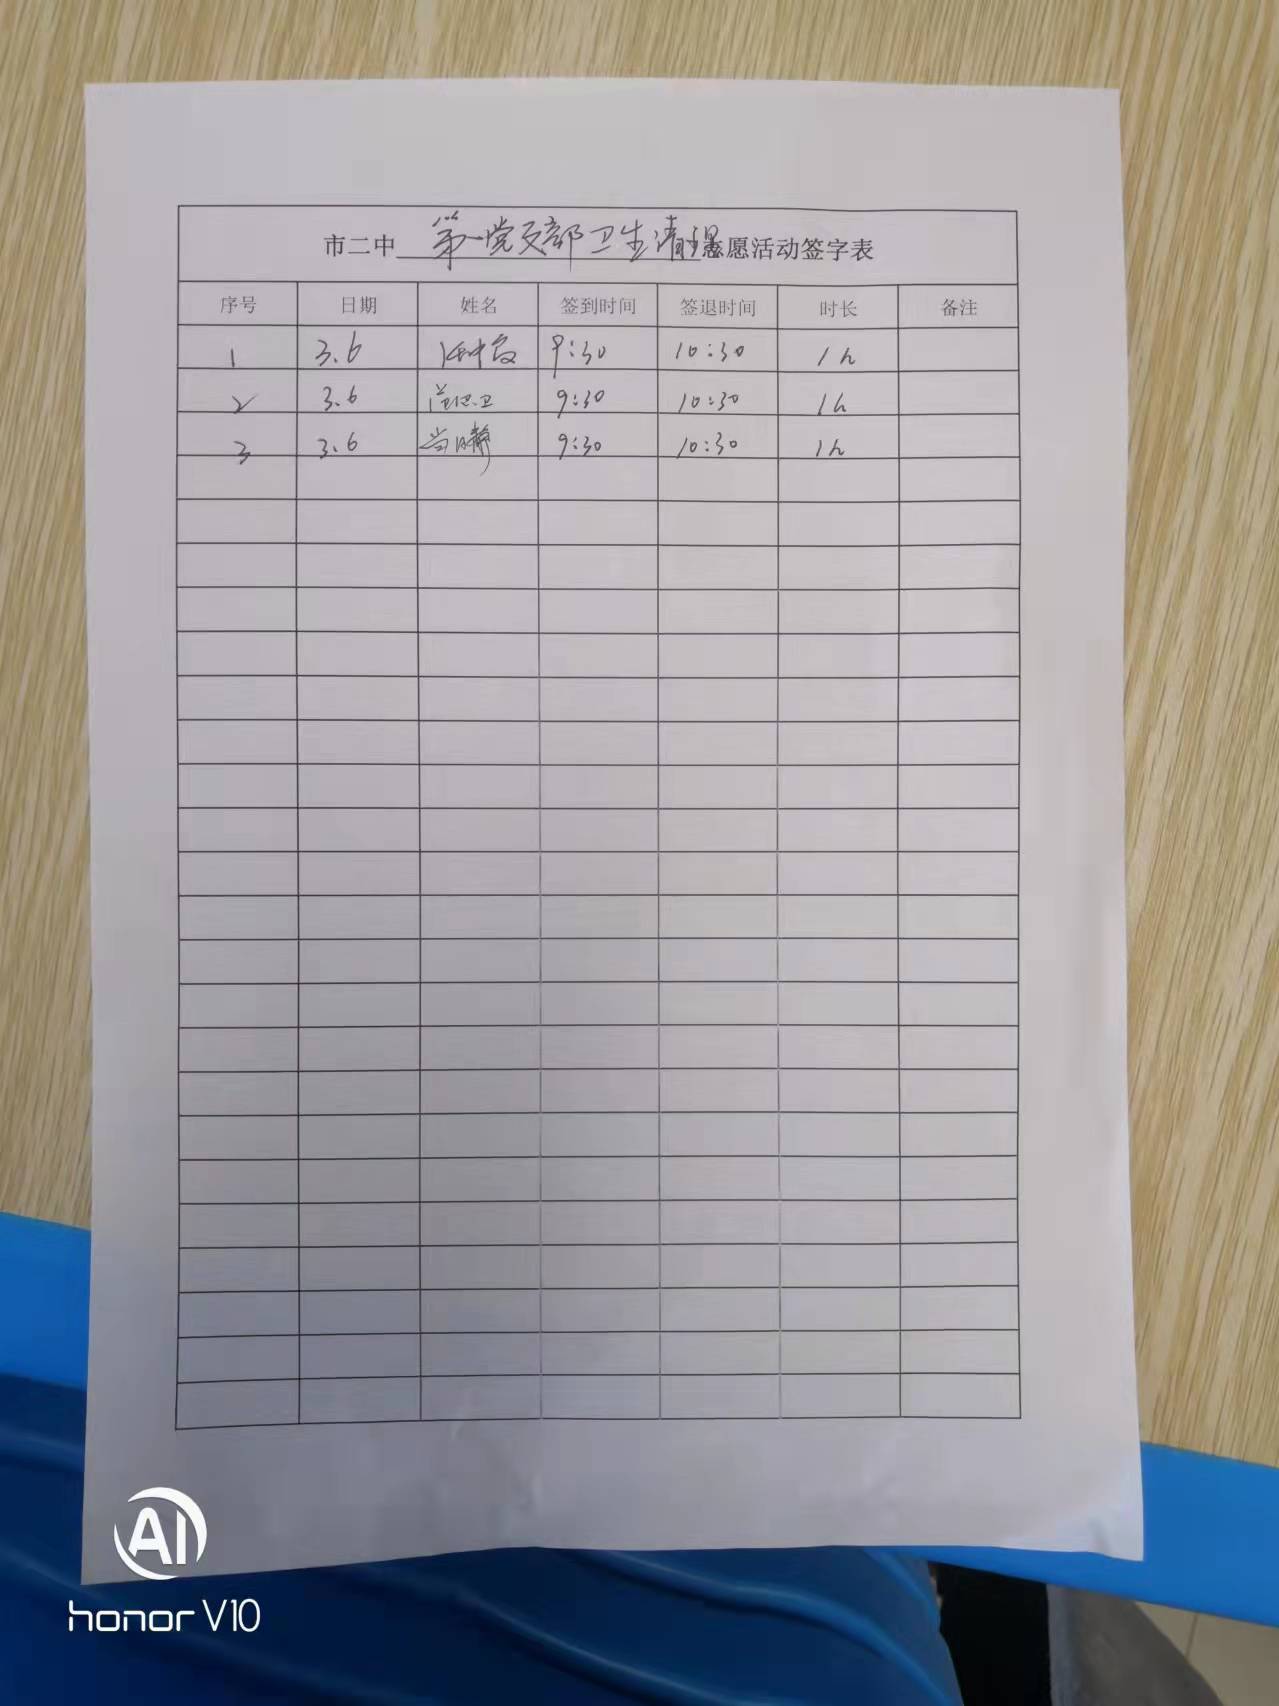 市二中 第一党支部卫生清理志愿活动签字表
序号 日期 姓名 签到时间 签退时间 时长 备注
1 3.6 9:30 10:30 1h
2 3.6 范仕卫 9:30 10:30 1h
3 3.6 9:30 10:30 1h
AI
honor V10